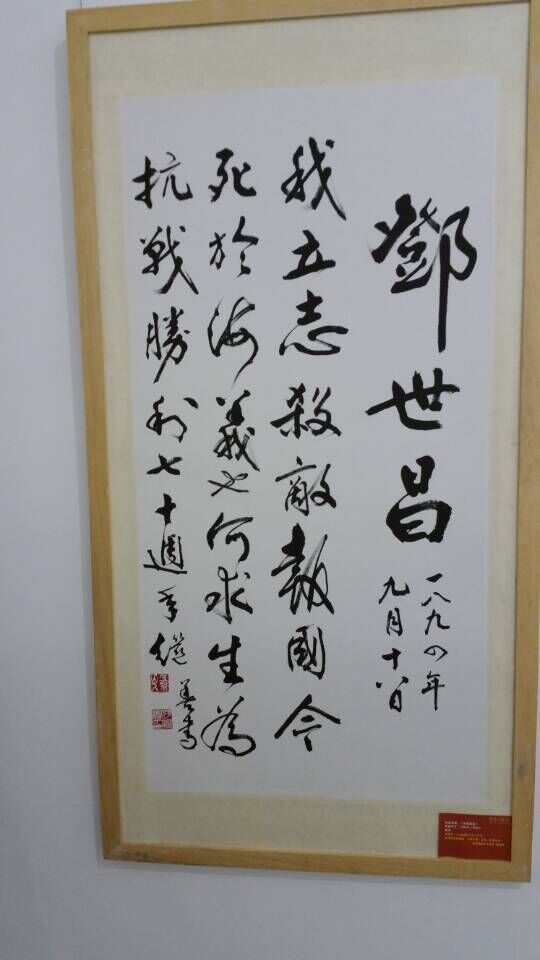 鄧世昌
一八九四年
九月十八日
我立志殺敵報國今
死於海義也何求生為
抗戰勝利七十週年繼善書